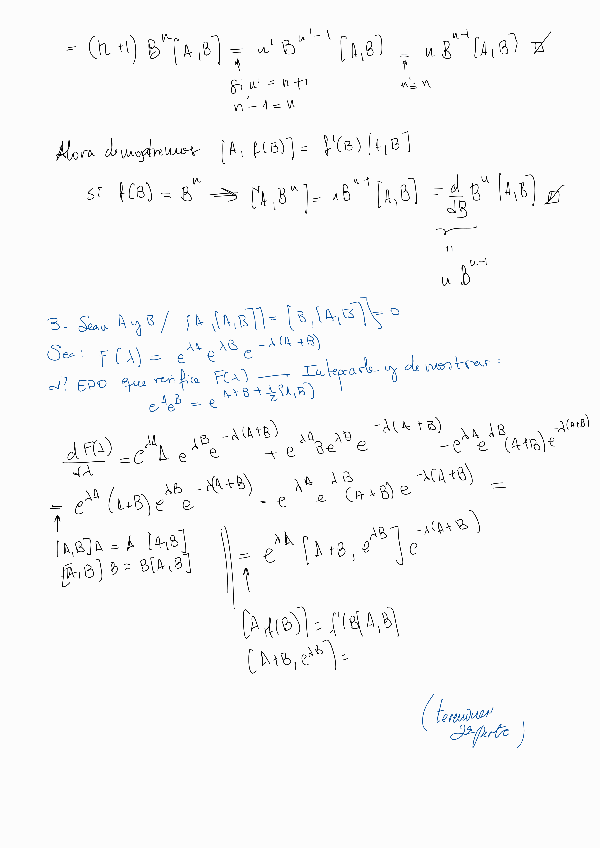 = (n+1) Bⁿ [A,B] = n' Bⁿ'⁻¹ [A,B] = n Bⁿ⁻¹ [A,B]
↑ n' = n+1 n'≡n
n'-1 = n
Ahora demostramos [A, f(B)] = f'(B) [A,B]
si f(B) = Bⁿ ⟹ [A,Bⁿ] = nBⁿ⁻¹ [A,B] = d/dB Bⁿ [A,B]
"
n Bⁿ⁻¹
3- Sean A y B / [A,[A,B]] = [B,[A,B]] = 0
Sea: F(λ) = e^{λA} e^{λB} e^{-λ(A+B)}
¿? EDO que verifica F(λ) ⟶ Integrarla y demostrar:
e^A e^B = e^{A+B+½[A,B]}
dF(λ)/dλ = e^{λA} A e^{λB} e^{-λ(A+B)} + e^{λA} B e^{λB} e^{-λ(A+B)} - e^{λA} e^{λB} (A+B) e^{-λ(A+B)}
= e^{λA} (A+B) e^{λB} e^{-λ(A+B)} - e^{λA} e^{λB} (A+B) e^{-λ(A+B)} =
↑
[A,B]A = A [A,B]
[A,B] B = B[A,B]
= e^{λA} [A+B, e^{λB}] e^{-λ(A+B)}
↑
[A f(B)] = f'(B)[A,B]
[A+B, e^{λB}] =
(terminar
2ª parte)